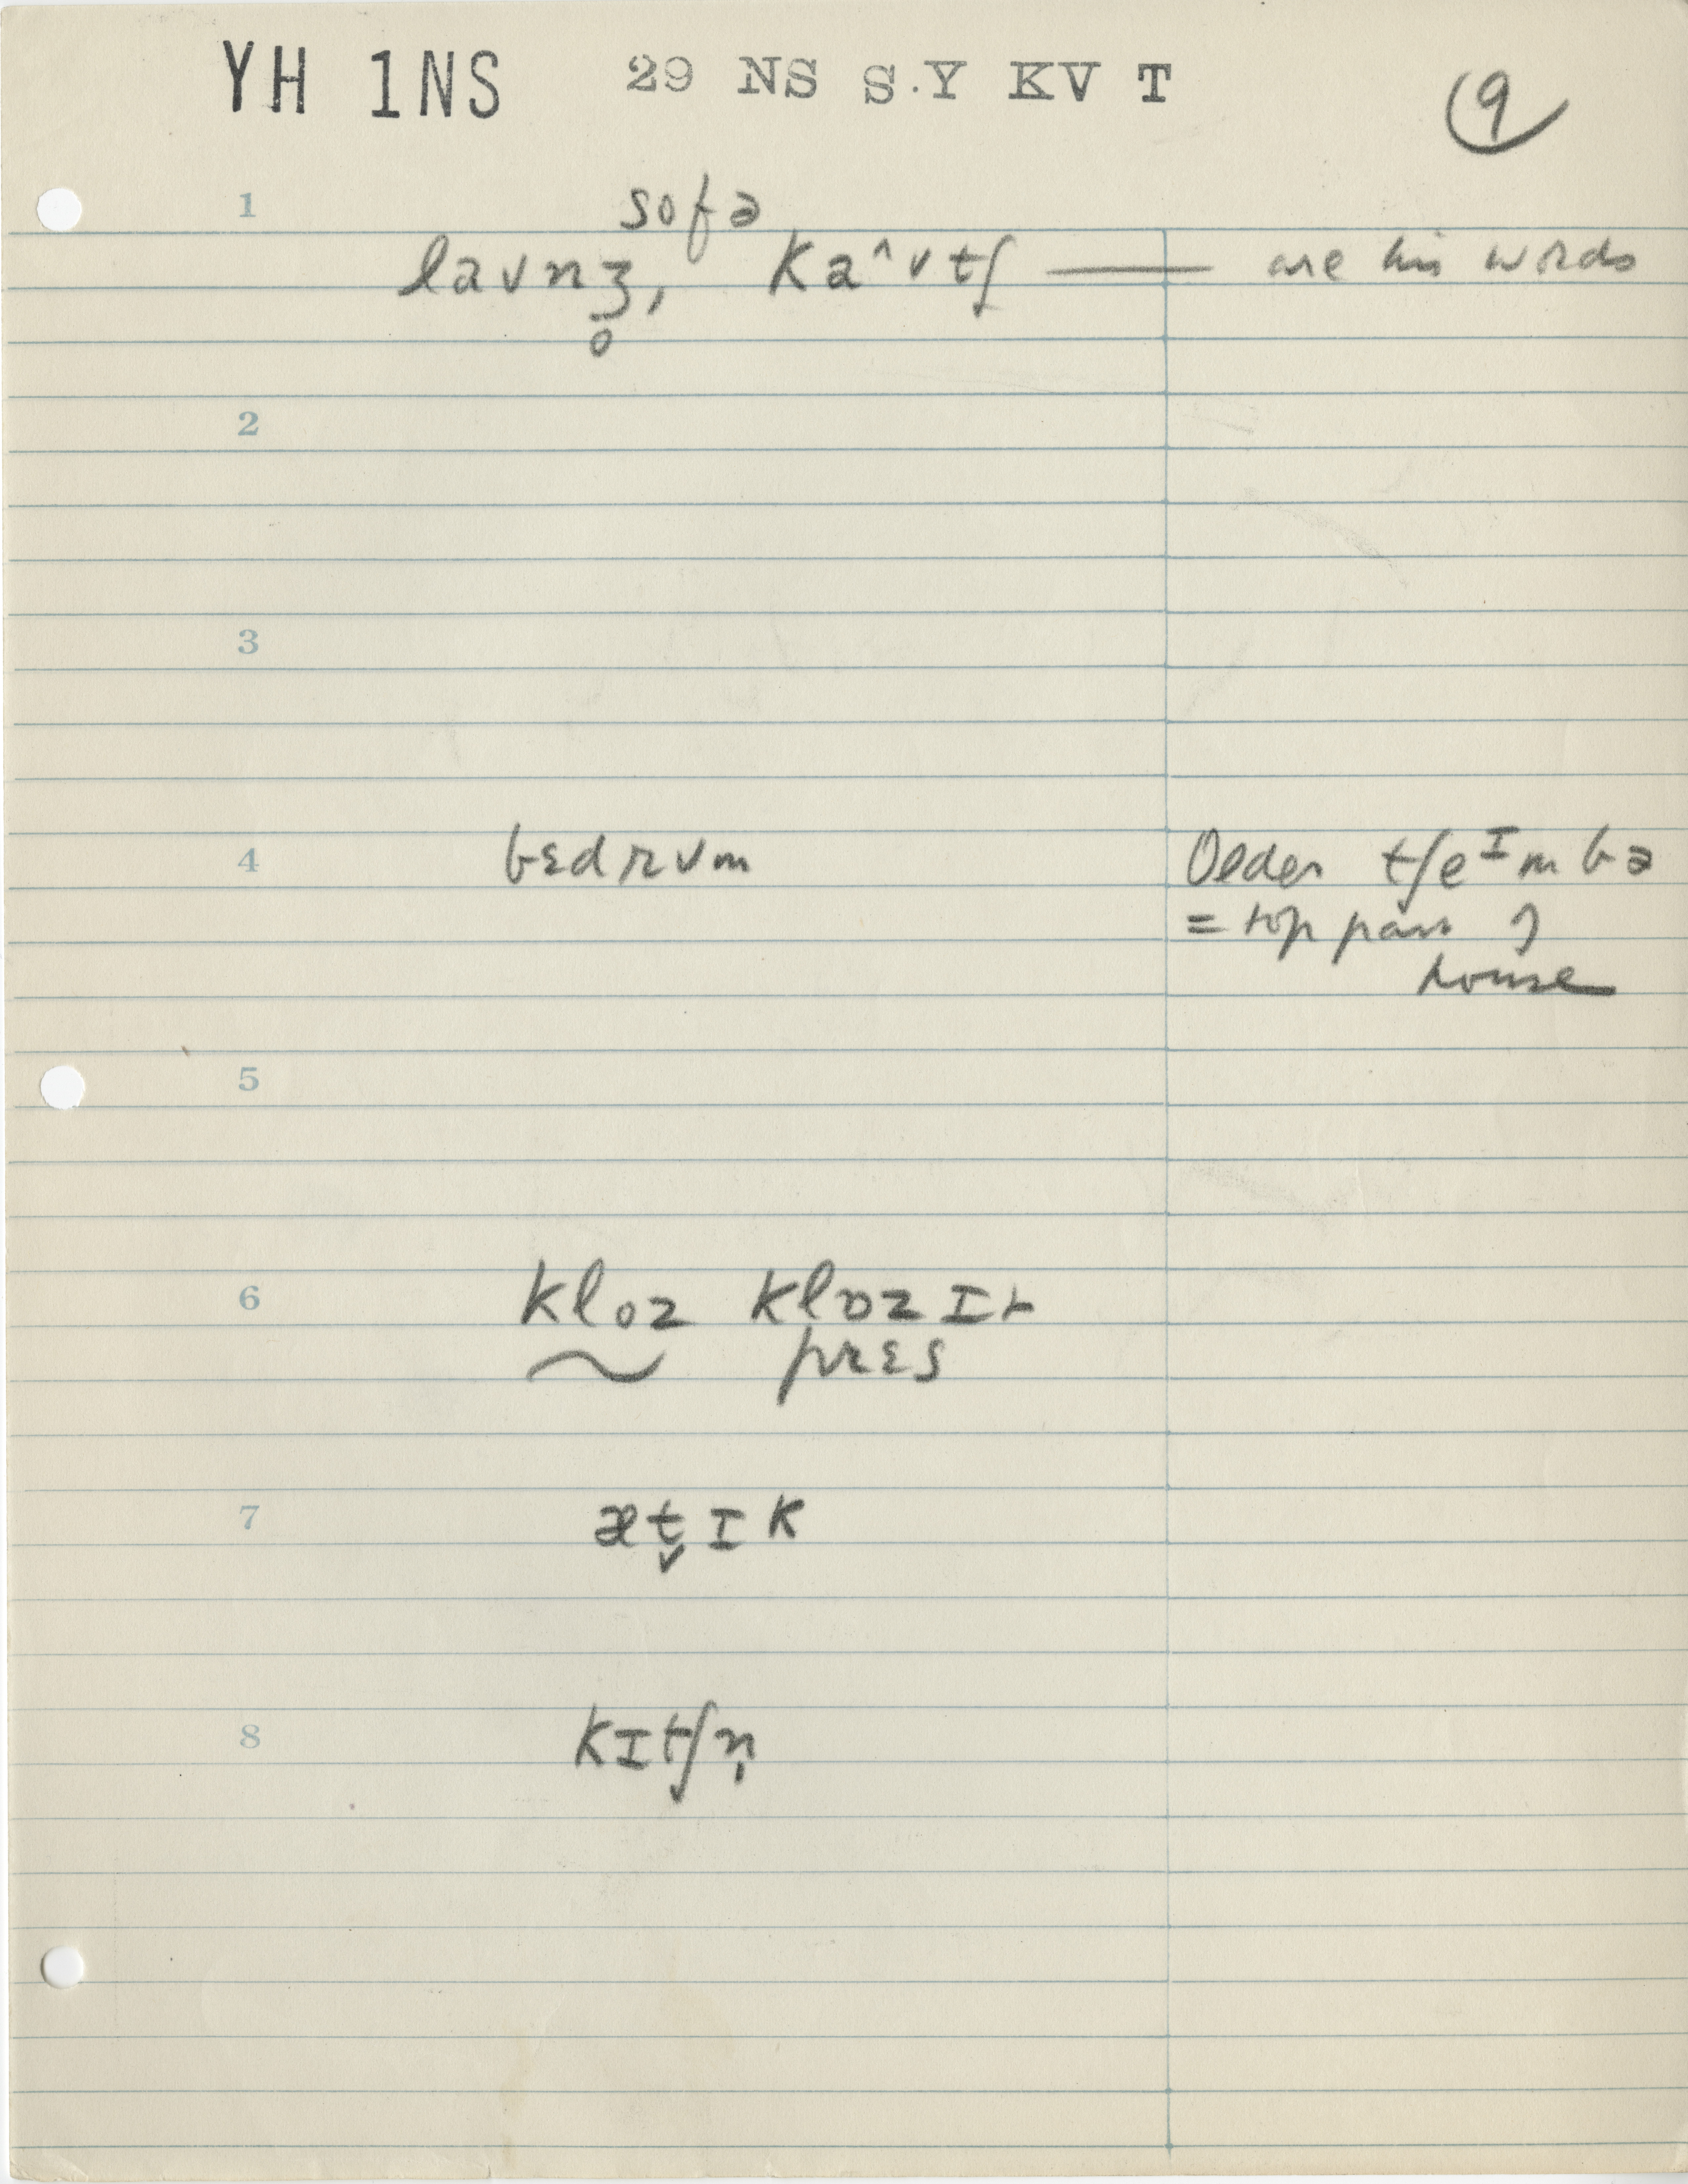 YH 1NS 29 NS S.Y KV T 9
1 sofə
laʊnʒ̥, ka^ʊtʃ — are his words
2
3
4 bɛdrʊm Older tʃeᴵmbə
= top part of
house
5
6 kloz klɒzɪt
~ prɛs
7 æt̬ɪk
8 kɪtʃn̩